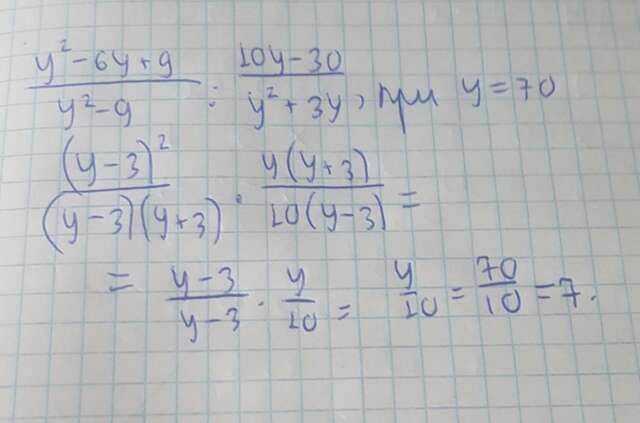 (y²-6y+9)/(y²-9) : (10y-30)/(y²+3y), при y=70
(y-3)²/((y-3)(y+3)) · y(y+3)/(10(y-3)) =
= (y-3)/(y-3) · y/10 = y/10 = 70/10 = 7.